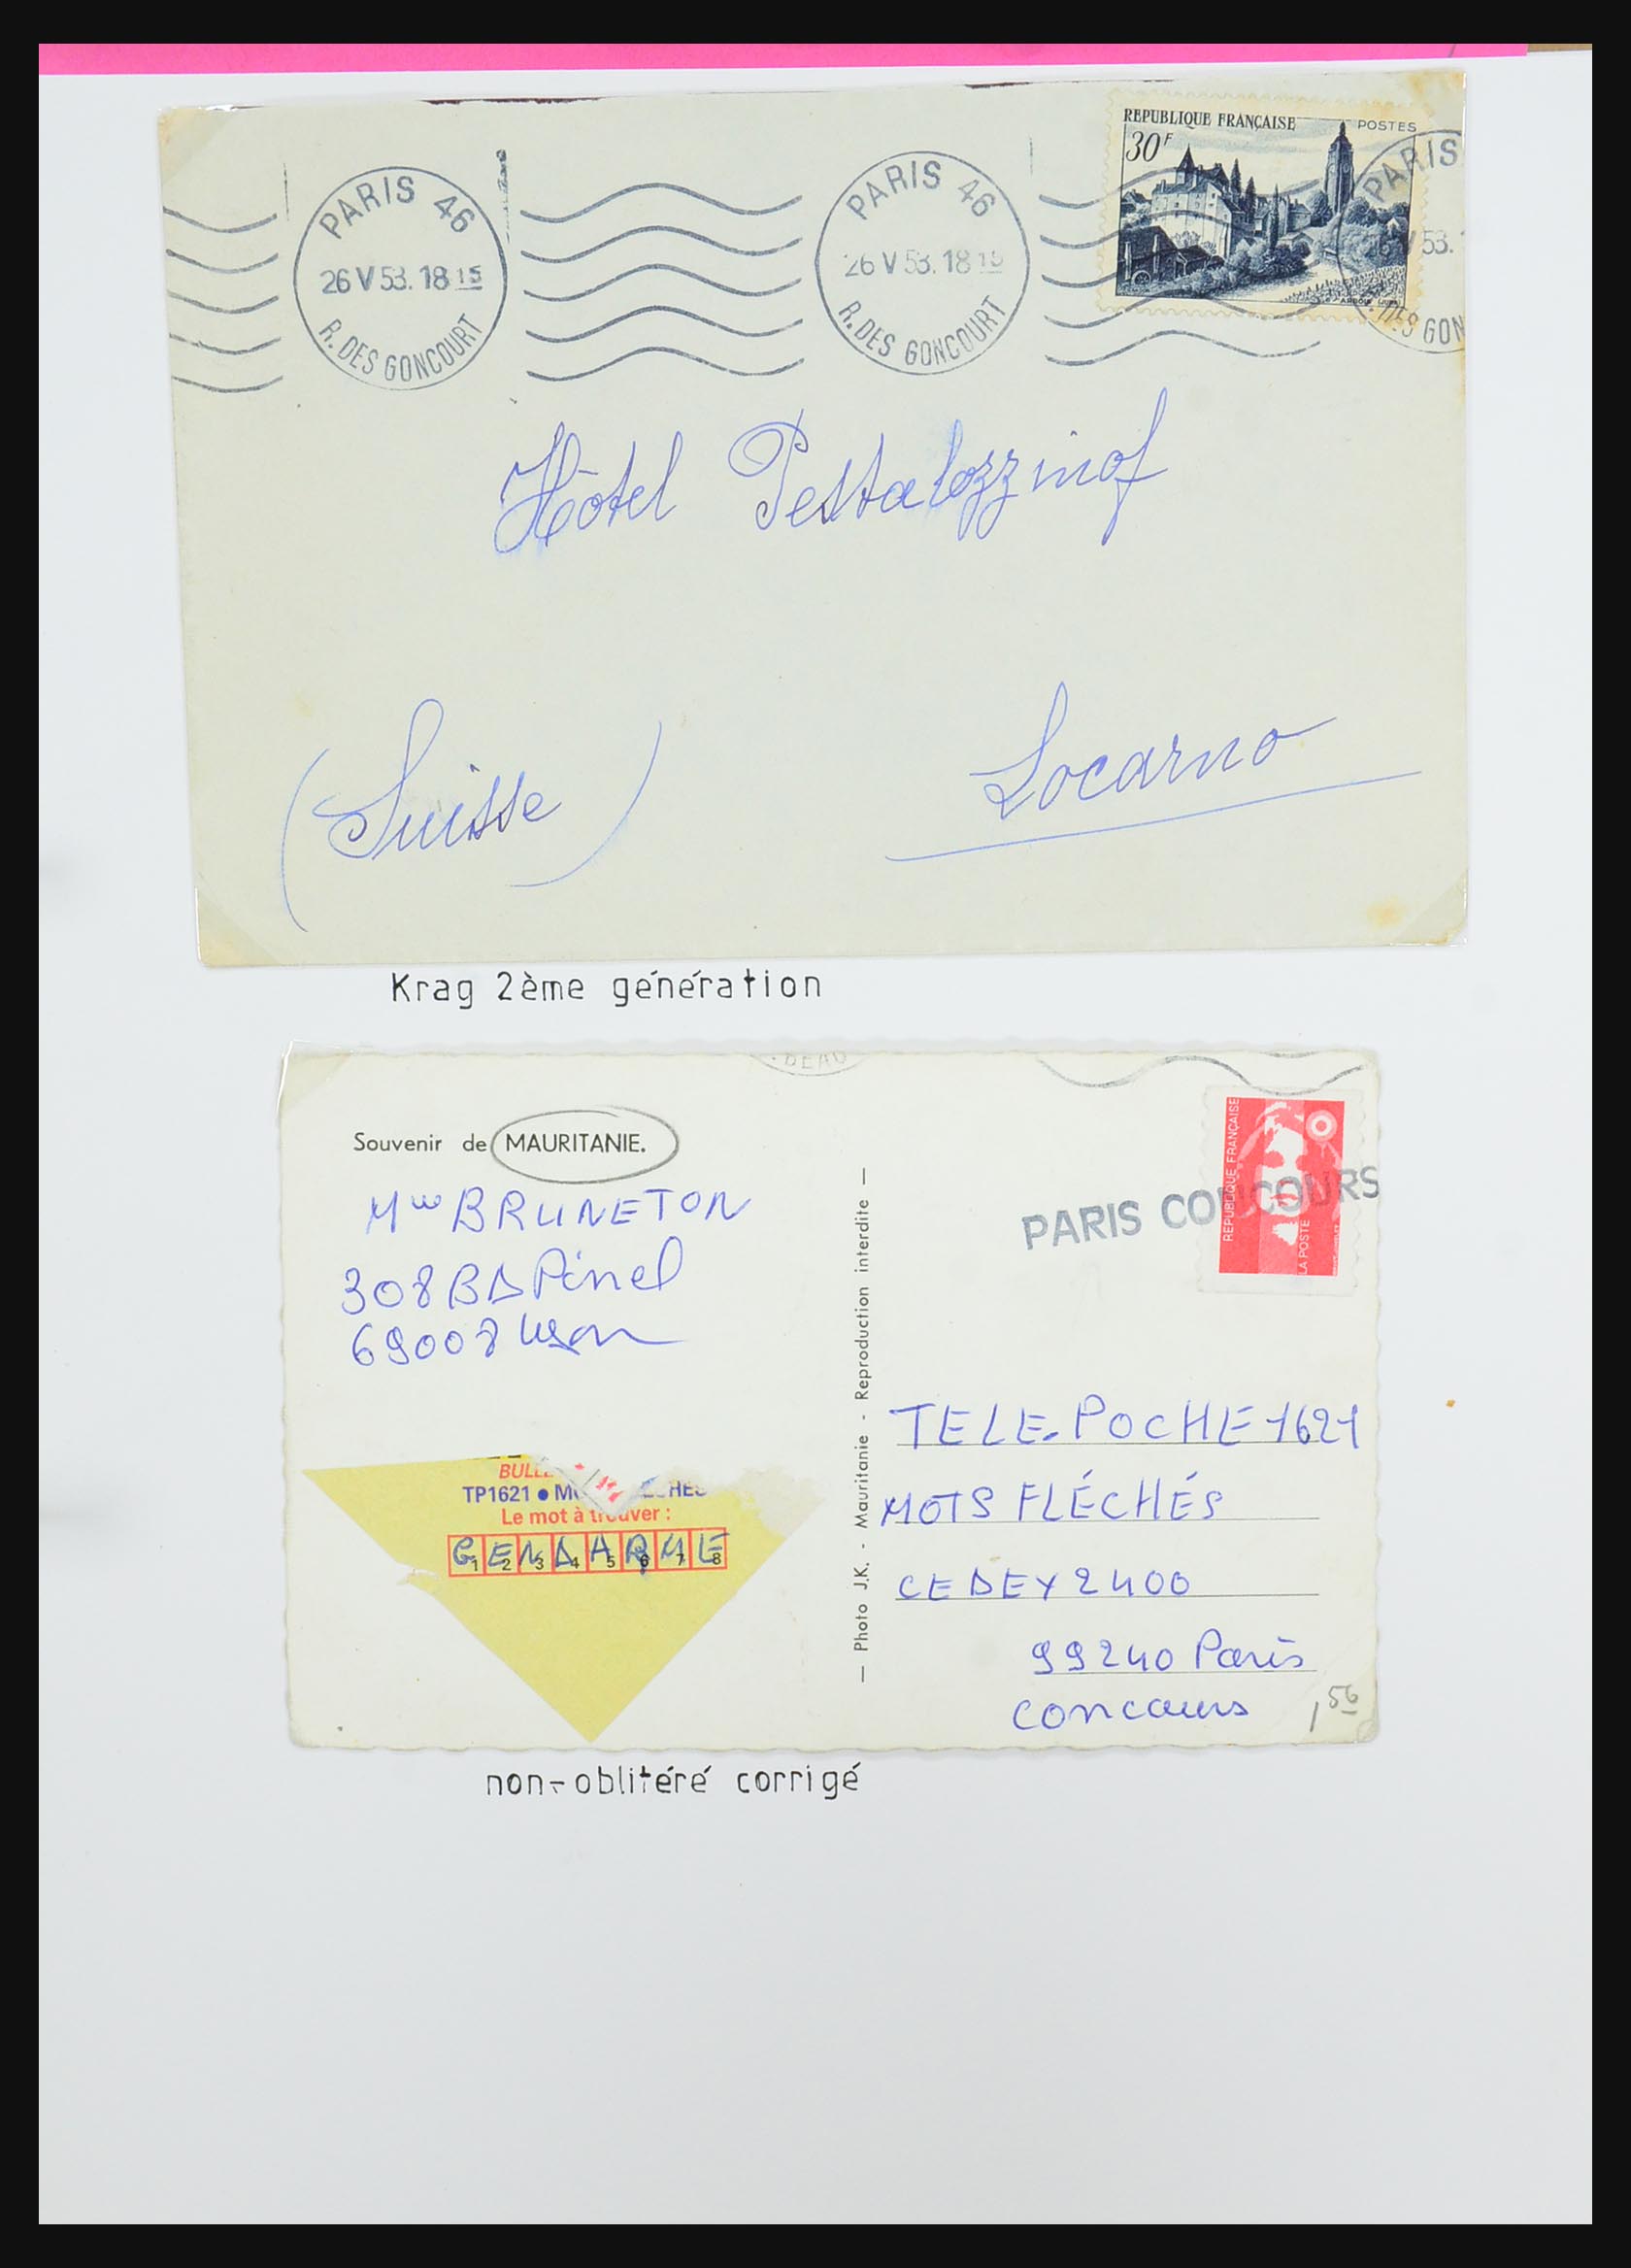 REPUBLIQUE FRANÇAISE POSTES
30F
PARIS 46
26 V 53. 18 15
R. DES GONCOURT
PARIS 46
26 V 53. 18 15
R. DES GONCOURT
PARIS
V 53.
DES GON
Hôtel Pestalozzihof
(Suisse)
Locarno
Krag 2ème génération
Souvenir de MAURITANIE.
BRUNETON
308 BD Pinel
69008 Lyon
TP1621 •
Le mot à trouver :
GENDARME
1 2 3 4 5 6 7 8
— Photo J.K. - Mauritanie - Reproduction interdite —
REPUBLIQUE FRANÇAISE
LA POSTE
PARIS CONCOURS
TELE-POCHE 1621
MOTS FLÉCHÉS
CEDEX 2400
99240 Paris
concours
1 56
non-oblitéré corrigé